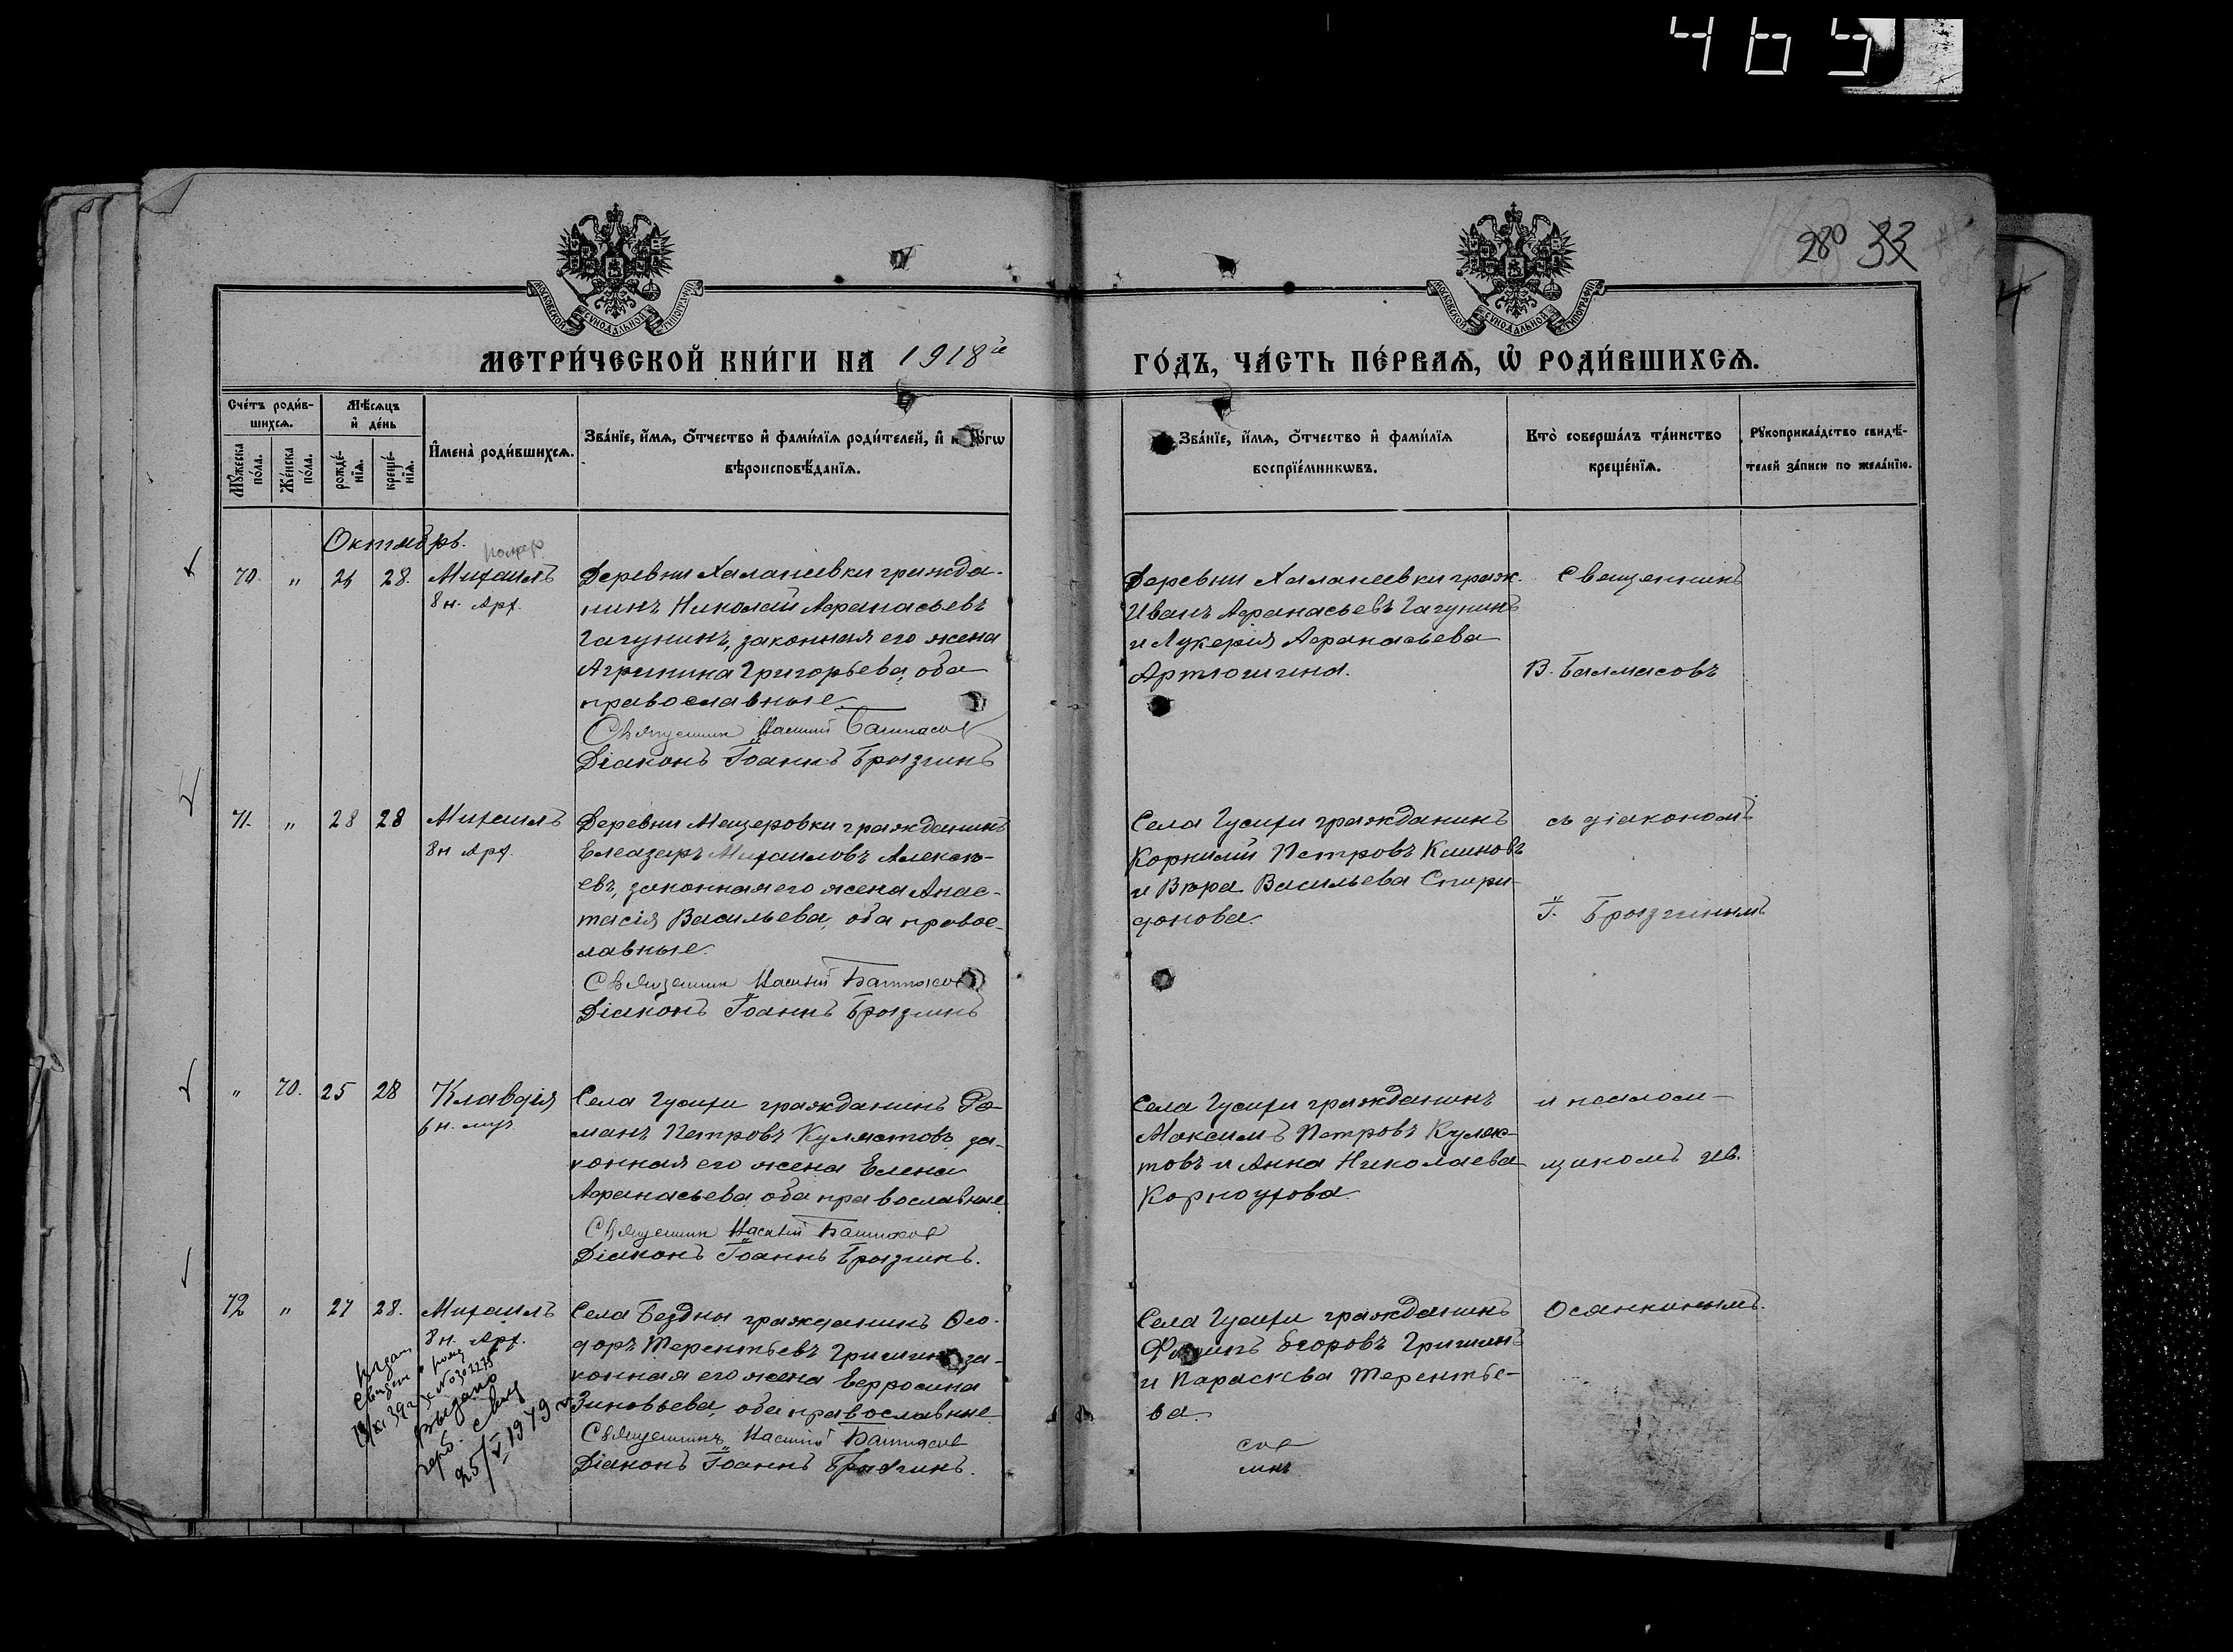 465
280 33
МОСКОВСКОЙ СѴНОДАЛЬНОЙ ТИПОГРАФІИ
МОСКОВСКОЙ СѴНОДАЛЬНОЙ ТИПОГРАФІИ
МЕТРИ́ЧЕСКОЙ КНИ́ГИ НА 1918й
ГО́ДЪ, ЧА́СТЬ ПЕ́РВАѦ, Ѡ҆ РОДИ́ВШИХСѦ.
Сче́тъ роди́в-
шихсѧ.
Мꙋ́жеска по́ла.
Же́нска по́ла.
Мѣ́сѧцъ
и҆ де́нь
рожде́-
нїѧ.
креще́-
нїѧ.
И҆мена̀ роди́вшихсѧ.
Зва́нїе, и҆́мѧ, ѻ҆́тчество и҆ фами́лїѧ роди́телей, и҆
вѣроисповѣ́данїѧ.
Зва́нїе, и҆́мѧ, ѻ҆́тчество и҆ фами́лїѧ
воспрїе́мникѡвъ.
Кто̀ соверша́лъ та́инство
креще́нїѧ.
Рꙋкоприкла́дство свидѣ́-
телей за́писи по жела́нїю.
Октябрь.
70. " 28. Михаилъ
8 н. Арх.
Деревни Халапеевки гражда-
нинъ Николай Афанасьевъ
Гагунинъ, законная его жена
Агрипина Григорьева, оба
православные.
Священник Василий Балмасов
Діаконъ Іоаннъ Брызгинъ
Деревни Халапеевки граж.
Иванъ Афанасьевъ Гагунинъ
и Лукерія Афанасьева
Артюшина.
Священникъ
В. Балмасовъ
71. " 28 28 Михаилъ
8 н Арх.
Деревни Мещеровки гражданинъ
Елеазаръ Михаиловъ Алексѣ-
евъ, законная его жена Анас-
тасія Васильева, оба правос-
лавные.
Священник Василий Балмасов
Діаконъ Іоаннъ Брызгинъ
Села Гусихи гражданинъ
Корнилій Петровъ Климовъ
и Вѣра Васильева Спири-
донова.
съ діакономъ
І. Брызгинымъ
" 70. 25 28 Клавдія
6 н. муч.
Села Гусихи гражданинъ Ро-
манъ Петровъ Кулястовъ, за-
конная его жена Елена
Афанасьева, оба православные
Священник Василий Балмасов
Діаконъ Іоаннъ Брызгинъ.
Села Гусихи гражданинъ
Максимъ Петровъ Куляс-
товъ и Анна Николаева
Корноухова.
и псалом-
щикомъ Ив.
72 " 27 28. Михаилъ
8 н. Арх.
Села Бездны гражданинъ Ѳео-
доръ Терентьевъ Гришинъ, за-
конная его жена Евросина
Зиновьева, оба православные
Священникъ Василий Балмасов
Діаконъ Іоаннъ Брызгинъ.
Села Гусихи гражданинъ
Филипъ Егоровъ Гришинъ
и Параскева Терентье-
ва.
Осянкинымъ.
Выдано
герб. свид
25/V 1979 г